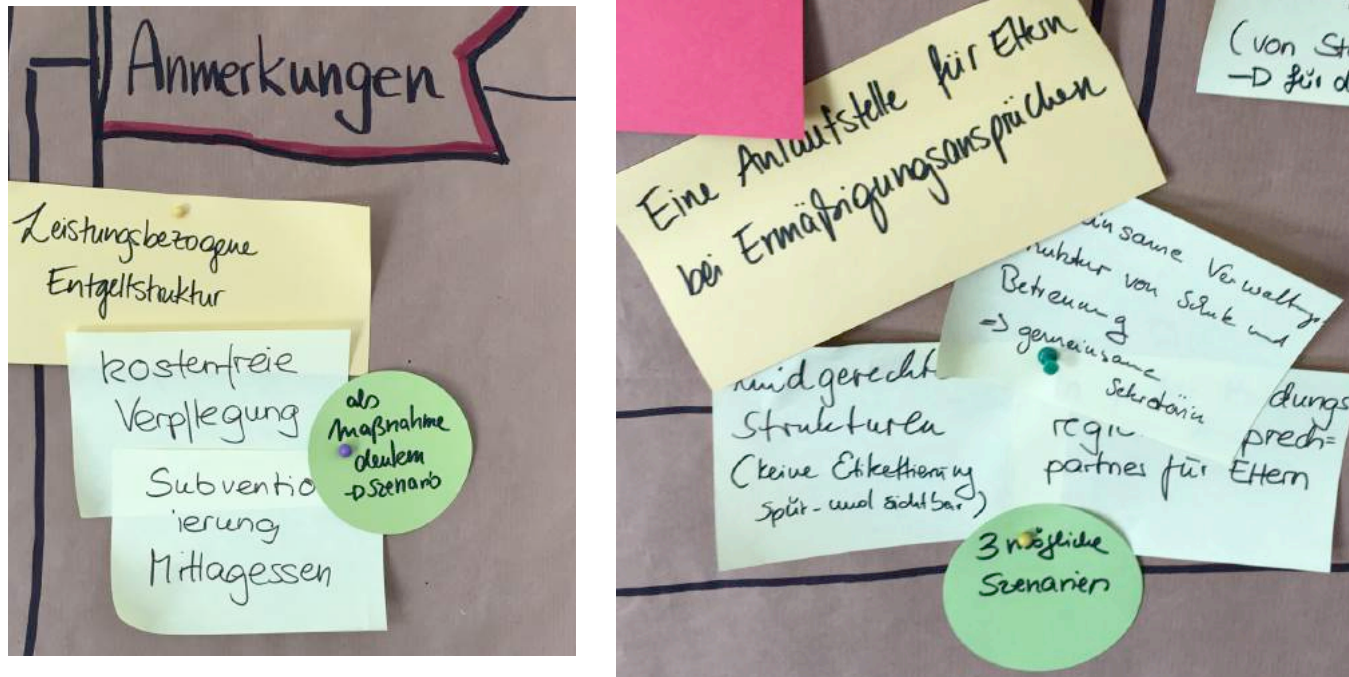 Anmerkungen
Leistungsbezogene
Entgeltstruktur
kostenfreie
Verpflegung
als
Maßnahme
denken
Szenario
Subventio
ierung
Mittagessen
(von
für
Eine Anlaufstelle für Eltern
bei Ermäßigungsansprüchen
insame Verwaltungs
von Schule und
Betreuung
=> gemeinsame
Sekretärin
Strukturen
(keine Etikettierung
spür- und sichtbar)
dungs
prech=
partner für Eltern
3 mögliche
Szenarien